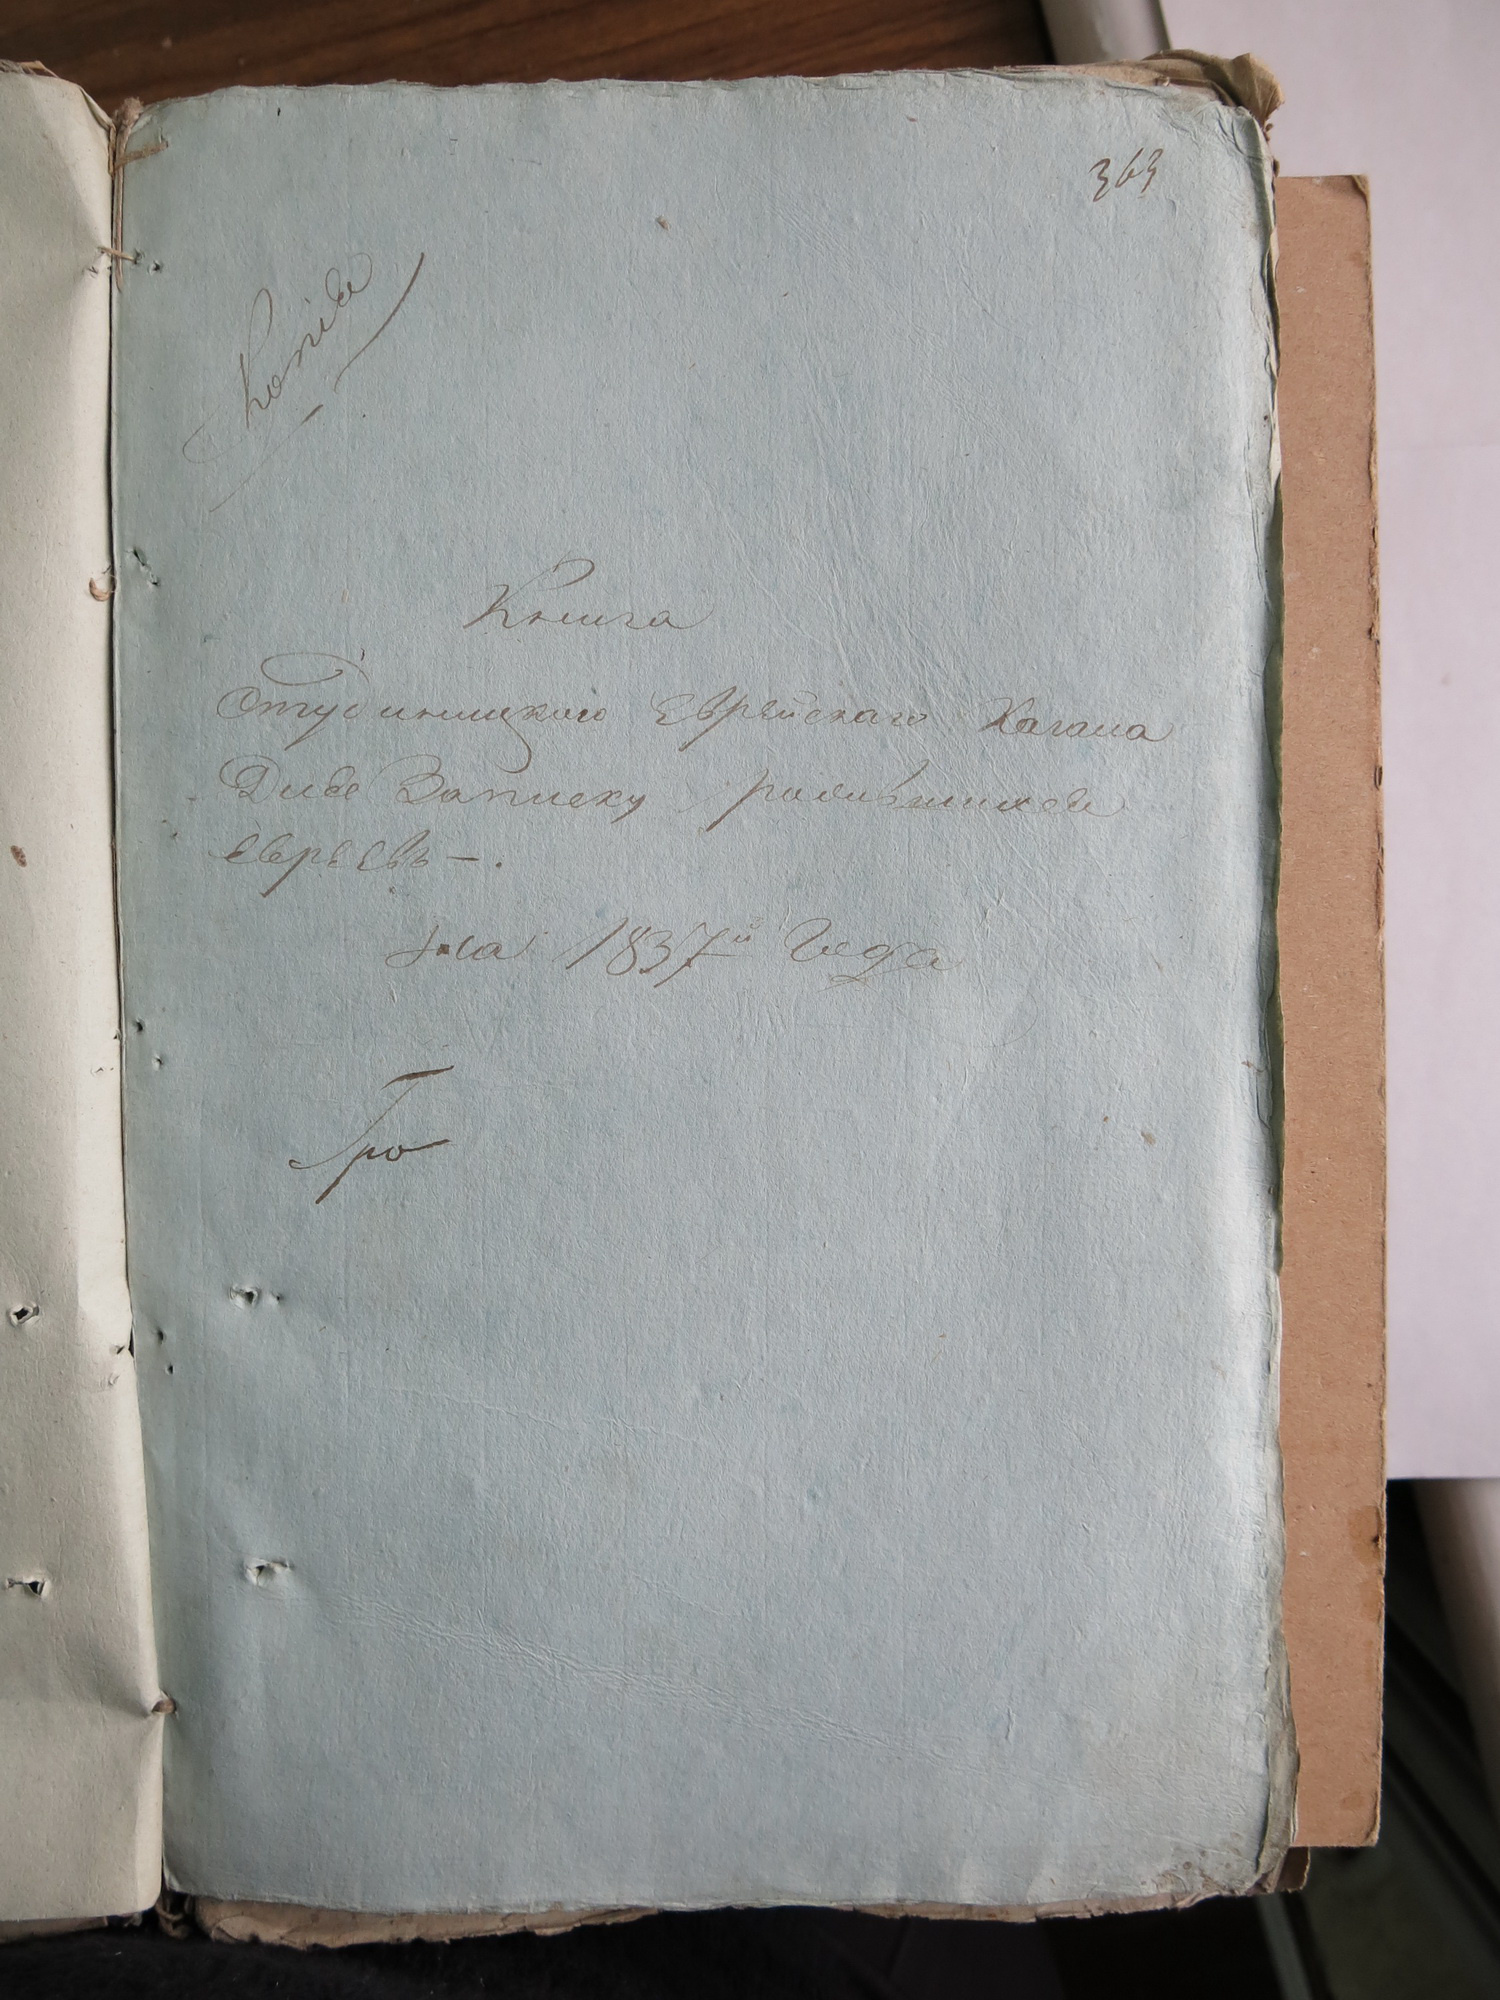 363
Копіѧ
Книга
Студиницкого Еврейскаго Кагала
Для Записку родившихся
Евреевъ —.
на 1837й Года